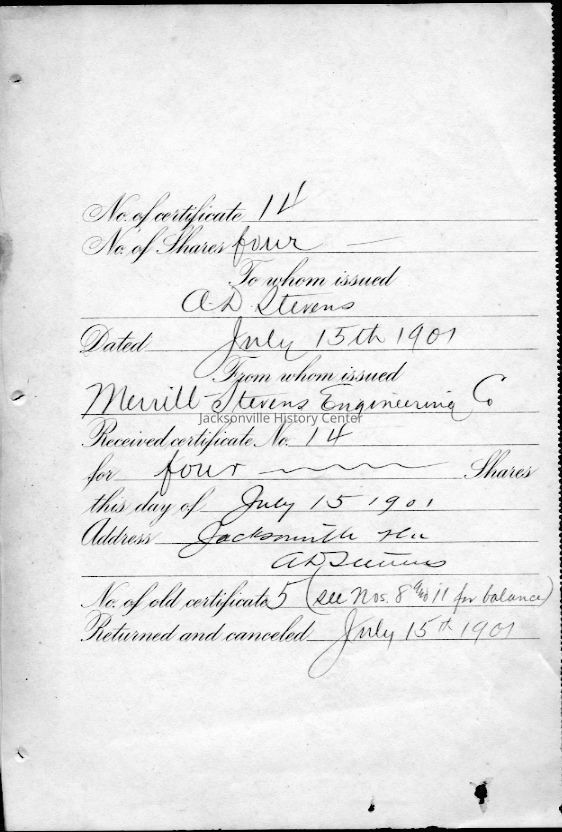 No. of certificate 14
No. of Shares four
To whom issued
A D Stevens
Dated July 15th 1901
From whom issued
Merrill-Stevens Engineering Co
Jacksonville History Center
Received certificate No. 14
for four Shares
this day of July 15 1901
Address Jacksonville Fla
A D Stevens
No. of old certificate 5 (see Nos. 8 and 11 for balance)
Returned and canceled July 15th 1901